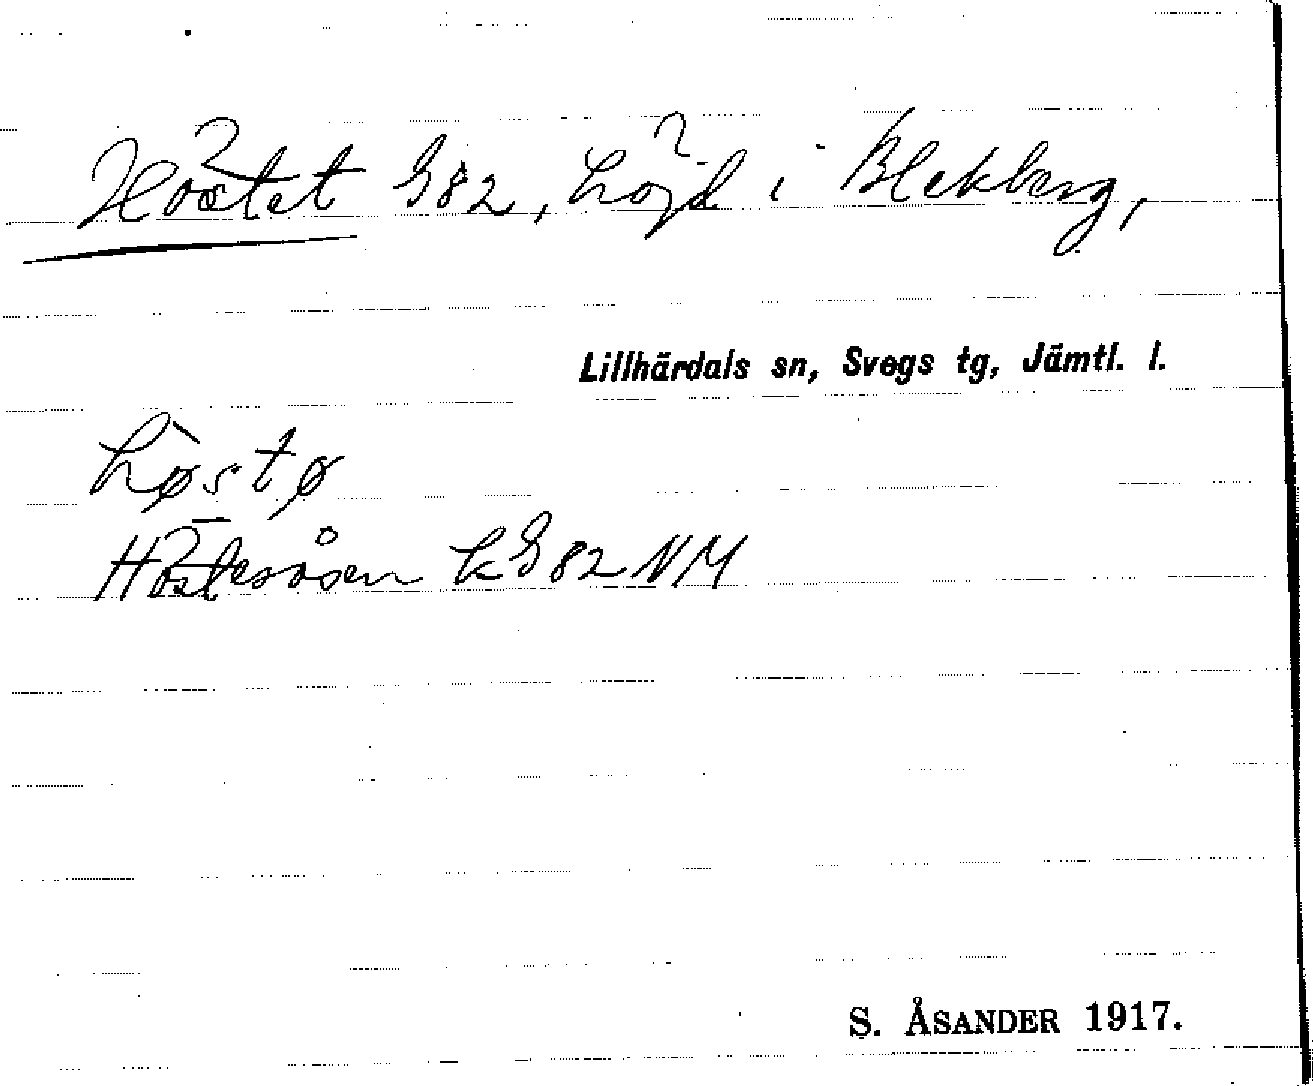 Höstet G82, höjd i Blekberg,
Lillhärdals sn, Svegs tg, Jämtl. l.
hø̀stø
Höstesåsen kG82NM
S. ÅSANDER 1917.